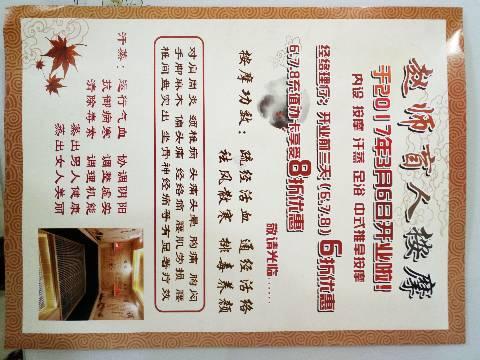 赵师盲人按摩
于2017年3月6日开业啦!!
内设 按摩 汗蒸 足浴 中式推拿按摩
经络理疗: 开业前三天(6.7.8) 6折优惠
6.7.8充值办卡享受8折优惠
敬请光临.....
按摩功效: 疏经活血 通经活络
祛风散寒 排毒养颜
对肩周炎 颈椎病 头痛头晕 胸痛 胸闷
手脚麻木 偏头痛 经络痛 腰肌劳损 腰
椎间盘突出 坐骨神经痛等有显著疗效
汗蒸: 运行气血 协调阴阳
抗御病衰 调整虚实
清除毒素 调理机能
蒸出男人健康
蒸出女人美丽